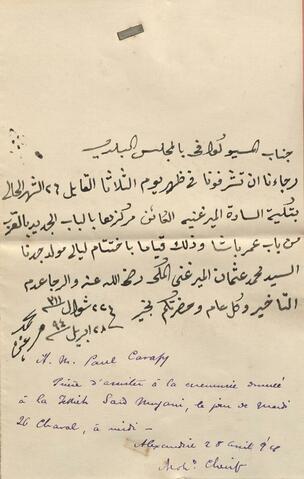 جناب المسيو كرافى بالمجلس البلدى
رجاءنا ان تشرفونا فى ظهر يوم الثلاثا القابل ٢٦ الشهر الحالى
بتكية السادة الميرغنيه الكائن مركزها بالباب الجديد بالقرب
من باب عمر باشا وذلك قياما باختتام ليالى مولد جدنا
السيد محمد عثمان الميرغنى المكى رضى الله عنه والرجا عدم
التأخير وكل عام وحضرتكم بخير
٢٢ شوال ٣١١
٢٨ ابريل ٩٤
A M. Paul Carafy
Prière d'assister à la cérémonie donnée
à la Said Mirgani, le jour de mardi
26 Chawal, à midi –
Alexandrie 28 avril 94
Moh. Cherif